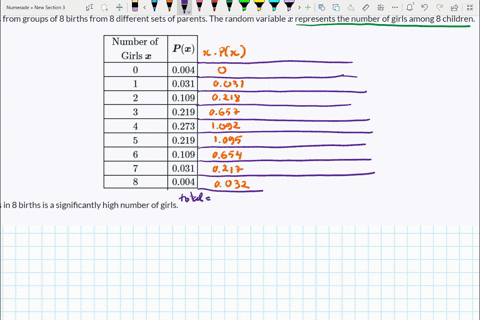 Numerade • New Section 3
s from groups of 8 births from 8 different sets of parents. The random variable x represents the number of girls among 8 children.
Number of Girls x P(x) x · P(x)
0 0.004 0
1 0.031 0.031
2 0.109 0.218
3 0.219 0.657
4 0.273 1.092
5 0.219 1.095
6 0.109 0.654
7 0.031 0.217
8 0.004 0.032
total =
s in 8 births is a significantly high number of girls.